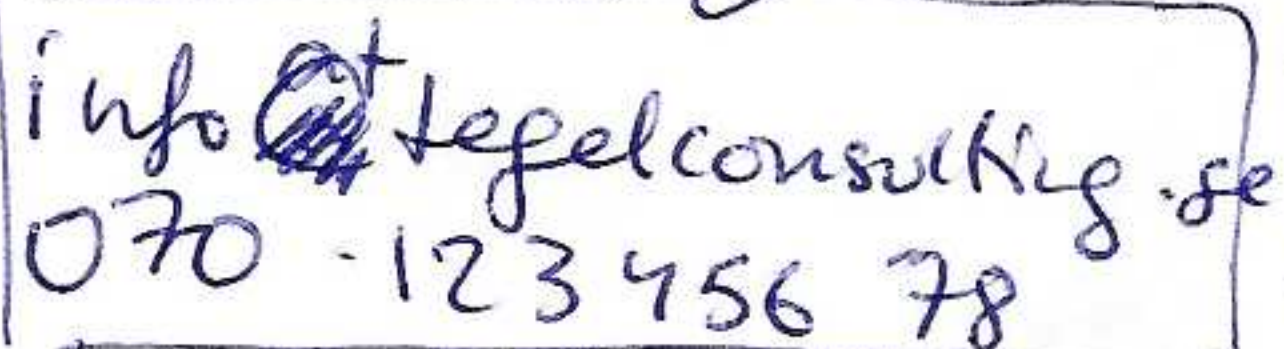 info@tegelconsulting.se
070-123456 78